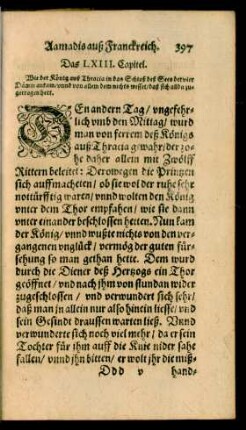 Aamadis auß Franckreich. 397
Das LXIII. Capitel.
Wie der König auß Thracia in das Schloß deß Sees der vier
Dämen ankam / vnnd von allem dem nichts wusste / daß sich allda zu-
getragen hett.
DEn andern Tag / vngefehr-
lich vmb den Mittag / wurd
man von ferrem deß Königs
auß Thracia gwahr / der zo-
he daher allein mit Zwölff
Rittern beleitet: Derowegen die Printzen
sich auffmacheten / ob sie wol der ruhe sehr
notturfftig waren / vnnd wolten den König
vnter dem Thor empfahen / wie sie dann
vnter einander beschlossen hetten. Nun kam
der König / vnnd wußte nichts von den ver-
gangenen vnglück / vermög der guten für-
sehung so man gethan hette. Dem wurd
durch die Diener deß Hertzogs ein Thor
geöffnet / vnd nach jhm von stundan wider
zugeschlossen / vnd verwundert sich sehr /
daß man jn allein nur also hinein liesse / vnd
sein Gesindt draussen warten ließ. Vnnd
verwunderte sich noch viel mehr / da er sein
Tochter für jhm auff die Knie nider sahe
fallen / vnnd jhn bitten / er wolt jhr die miß-
Ddd v hand-